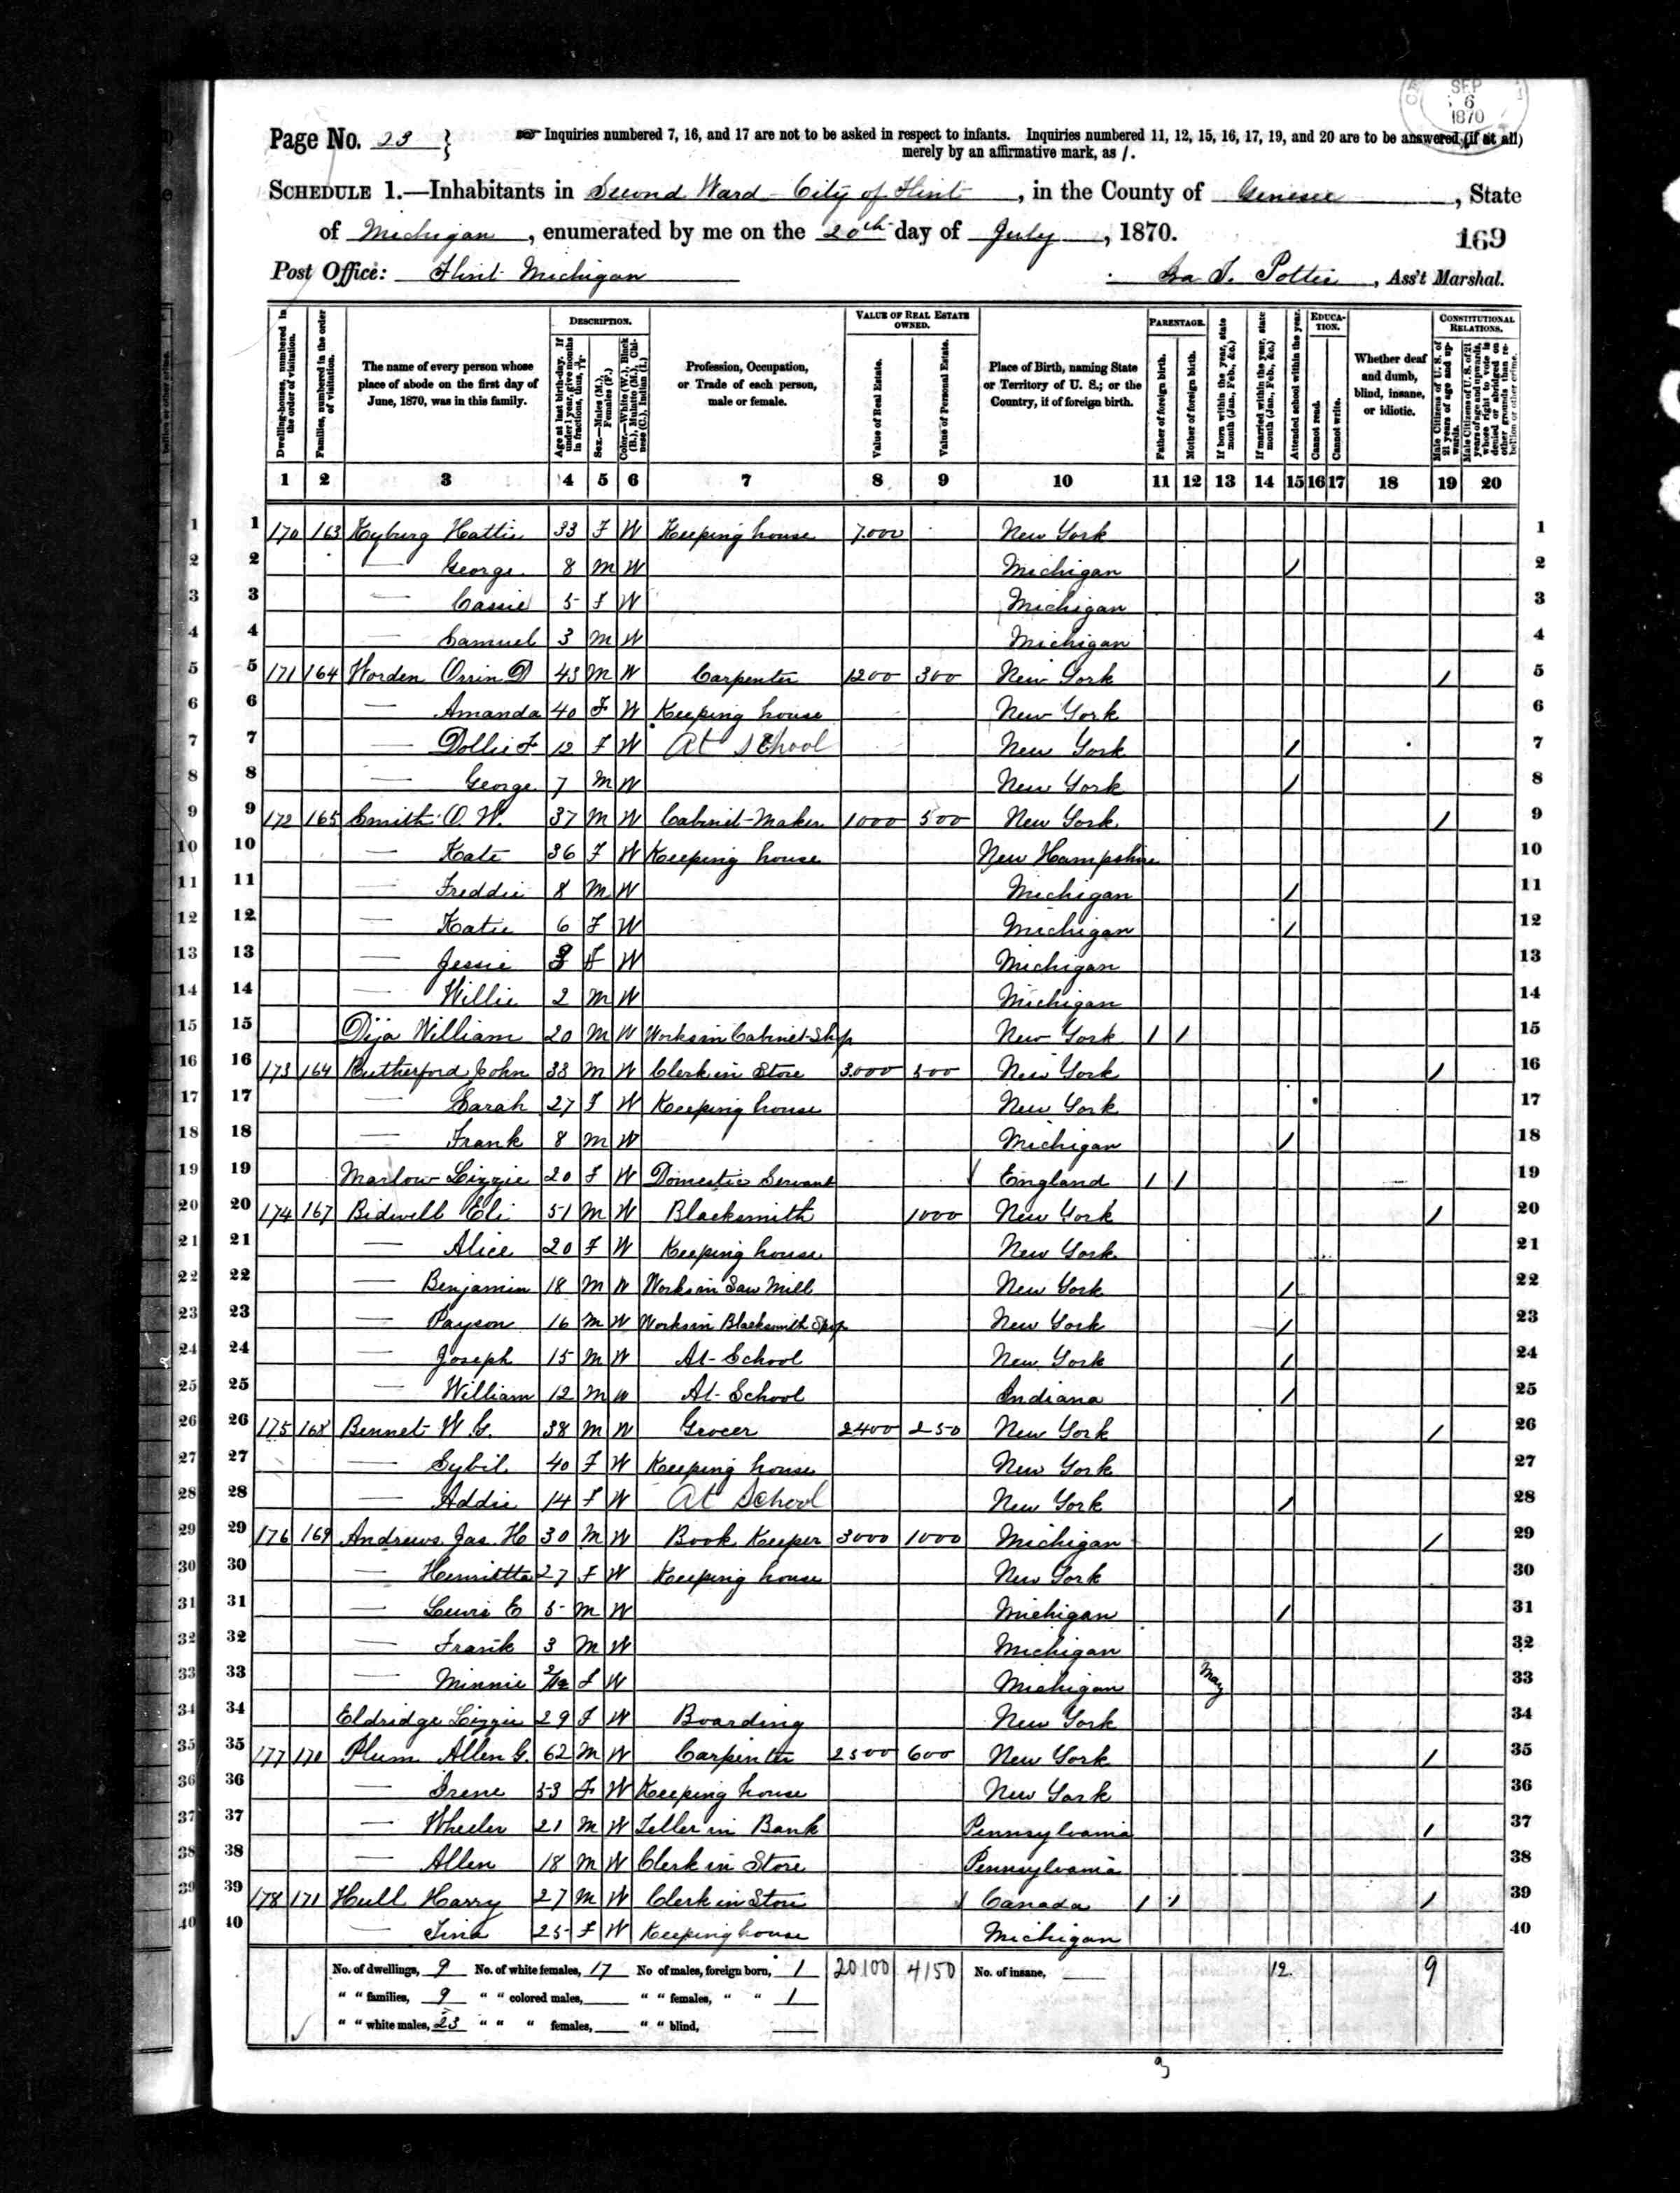 SEP
6
1870
Page No. 23 } Inquiries numbered 7, 16, and 17 are not to be asked in respect to infants. Inquiries numbered 11, 12, 15, 16, 17, 19, and 20 are to be answered (if at all)
merely by an affirmative mark, as /.
SCHEDULE 1.—Inhabitants in Second Ward - City of Flint, in the County of Genesee, State
of Michigan, enumerated by me on the 20th day of July, 1870.
169
Post Office: Flint Michigan
Ira T. Potter, Ass't Marshal.
Dwelling-houses, numbered in the order of visitation.
Families, numbered in the order of visitation.
The name of every person whose place of abode on the first day of June, 1870, was in this family.
DESCRIPTION.
Age at last birth-day. If under 1 year, give months in fractions, thus, 3/12
Sex.—Males (M.), Females (F.)
Color.—White (W.), Black (B.), Mulatto (M.), Chinese (C.), Indian (I.)
Profession, Occupation, or Trade of each person, male or female.
VALUE OF REAL ESTATE OWNED.
Value of Real Estate.
Value of Personal Estate.
Place of Birth, naming State or Territory of U. S.; or the Country, if of foreign birth.
PARENTAGE.
Father of foreign birth.
Mother of foreign birth.
If born within the year, state month (Jan., Feb., &c.)
If married within the year, state month (Jan., Feb., &c.)
Attended school within the year.
EDUCATION.
Cannot read.
Cannot write.
Whether deaf and dumb, blind, insane, or idiotic.
CONSTITUTIONAL RELATIONS.
Male Citizens of U. S. of 21 years of age and upwards.
Male Citizens of U. S. of 21 years of age and upwards, whose right to vote is denied or abridged on other grounds than rebellion or other crime.
1 2 3 4 5 6 7 8 9 10 11 12 13 14 15 16 17 18 19 20
1 170 163 Hyburg Hattie 33 F W Keeping house 7.000 New York 1
2 — George 8 M W Michigan / 2
3 — Cassie 5 F W Michigan 3
4 — Samuel 3 M W Michigan 4
5 171 164 Worden Orrin D 43 M W Carpenter 1200 300 New York / 5
6 — Amanda 40 F W Keeping house New York 6
7 — Dollie F 12 F W At School New York / 7
8 — George 7 M W New York / 8
9 172 165 Smith O W. 37 M W Cabinet-Maker 1000 500 New York / 9
10 — Kate 36 F W Keeping house New Hampshire 10
11 — Freddie 8 M W Michigan / 11
12 — Katie 6 F W Michigan / 12
13 — Jessie 3 F W Michigan 13
14 — Willie 2 M W Michigan 14
15 Dija William 20 M W Works in Cabinet-Shop New York / / 15
16 173 164 Rutherford John 33 M W Clerk in Store 3.000 500 New York / 16
17 — Sarah 27 F W Keeping house New York 17
18 — Frank 8 M W Michigan / 18
19 Marlow Lizzie 20 F W Domestic Servant England / / 19
20 174 167 Bidwell Eli 51 M W Blacksmith 1000 New York / 20
21 — Alice 20 F W Keeping house New York 21
22 — Benjamin 18 M W Works in Saw Mill New York / 22
23 — Payson 16 M W Works in Blacksmith Shop New York / 23
24 — Joseph 15 M W At-School New York / 24
25 — William 12 M W At-School Indiana / 25
26 175 168 Bennet W. G. 38 M W Grocer 2400 250 New York / 26
27 — Sybil 40 F W Keeping house New York 27
28 — Addie 14 F W At School New York / 28
29 176 169 Andrews Jas. H 30 M W Book Keeper 3000 1000 Michigan / 29
30 — Henrietta 27 F W Keeping house New York 30
31 — Lewis E 5 M W Michigan / 31
32 — Frank 3 M W Michigan 32
33 — Minnie 2/12 F W Michigan May 33
34 Eldridge Lizzie 29 F W Boarding New York 34
35 177 170 Plum Allen G. 62 M W Carpenter 2500 600 New York / 35
36 — Irene 53 F W Keeping house New York 36
37 — Wheeler 21 M W Teller in Bank Pennsylvania / 37
38 — Allen 18 M W Clerk in Store Pennsylvania 38
39 178 171 Hull Harry 27 M W Clerk in Store Canada / / / 39
40 — Tina 25 F W Keeping house Michigan 40
No. of dwellings, 9 No. of white females, 17 No of males, foreign born, 1 20100 4150 No. of insane, 12. 9
" " families, 9 " " colored males, " " females, " " 1
" " white males, 23 " " " females, " " blind,